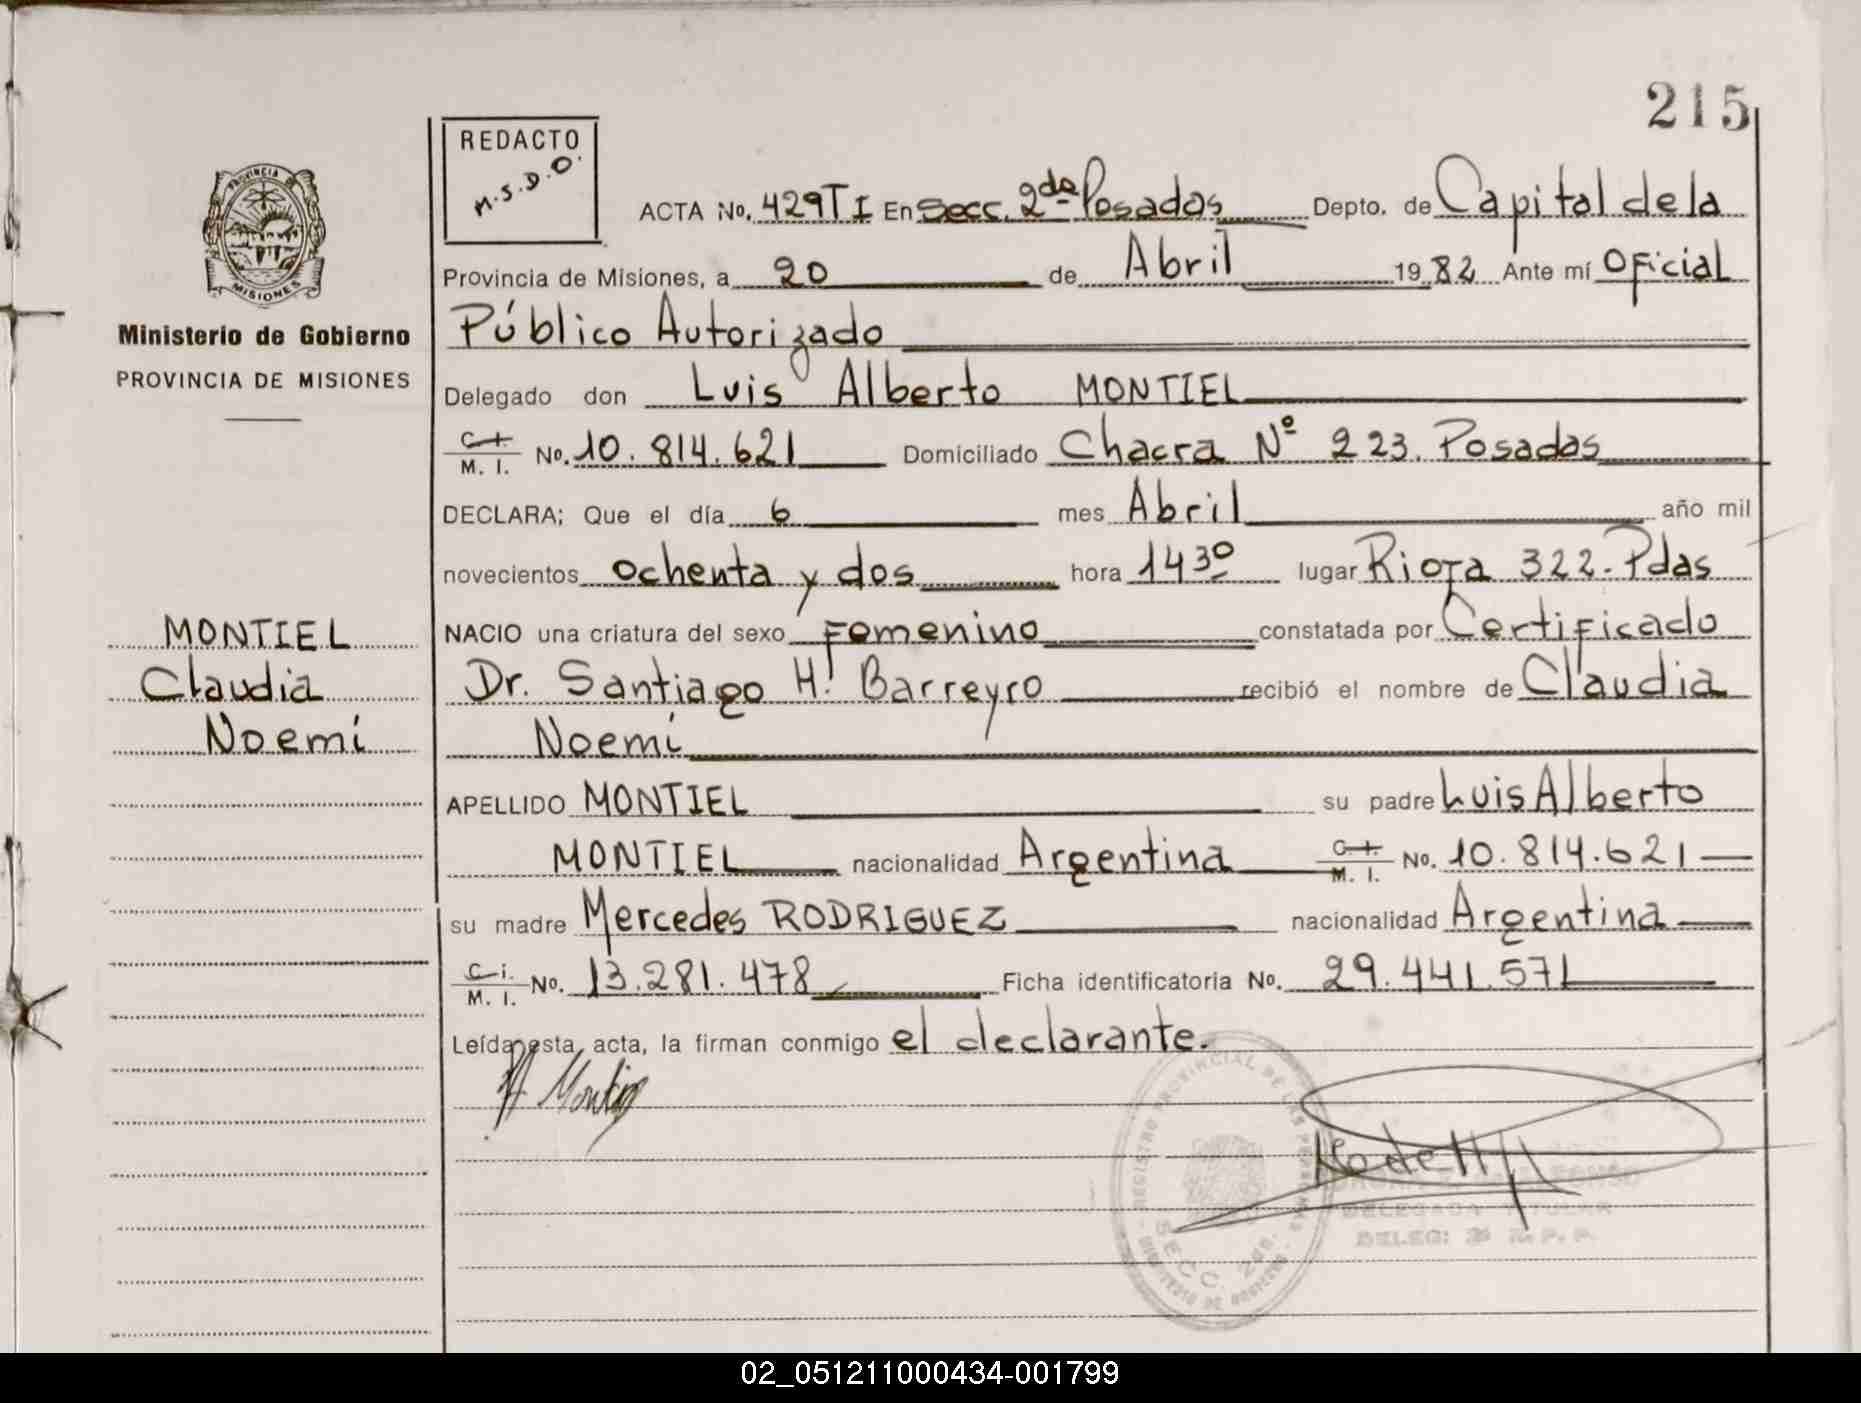 215
REDACTO
M.S.D.O.
ACTA No. 429 T I En Secc. 2da Posadas Depto. de Capital de la
Provincia de Misiones, a 20 de Abril 1982 Ante mí Oficial
Público Autorizado
Delegado don Luis Alberto MONTIEL
C.I. M. I. No. 10.814.621 Domiciliado Chacra Nº 223. Posadas
DECLARA; Que el día 6 mes Abril año mil
novecientos ochenta y dos hora 1430 lugar Rioja 322. Pdas
NACIO una criatura del sexo Femenino constatada por Certificado
Dr. Santiago H. Barreyro recibió el nombre de Claudia
Noemí
APELLIDO MONTIEL su padre Luis Alberto
MONTIEL nacionalidad Argentina C.I. M. I. No. 10.814.621
su madre Mercedes RODRIGUEZ nacionalidad Argentina
C.i. M. I. No. 13.281.478 Ficha identificatoria No. 29.441.571
Leída esta acta, la firman conmigo el declarante.
PROVINCIA
MISIONES
Ministerio de Gobierno
PROVINCIA DE MISIONES
MONTIEL
Claudia
Noemí
REGISTRO PROVINCIAL DE LAS PERSONAS
SECC. 2da.
MINISTERIO DE GOBIERNO
DELEGADA TITULAR
02_051211000434-001799